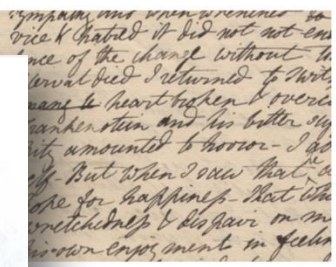 sympathy and when wrenched to
vice & hatred it did not not en
nce of the change without to
Clerval died I returned to Swit
heart broken & overco
Frankenstein and his bitter su
amounted to horror - I ab
self - But when I saw that he a
hope for happiness - that whi
wretchedness & despair on m
his own enjoyment in feelin